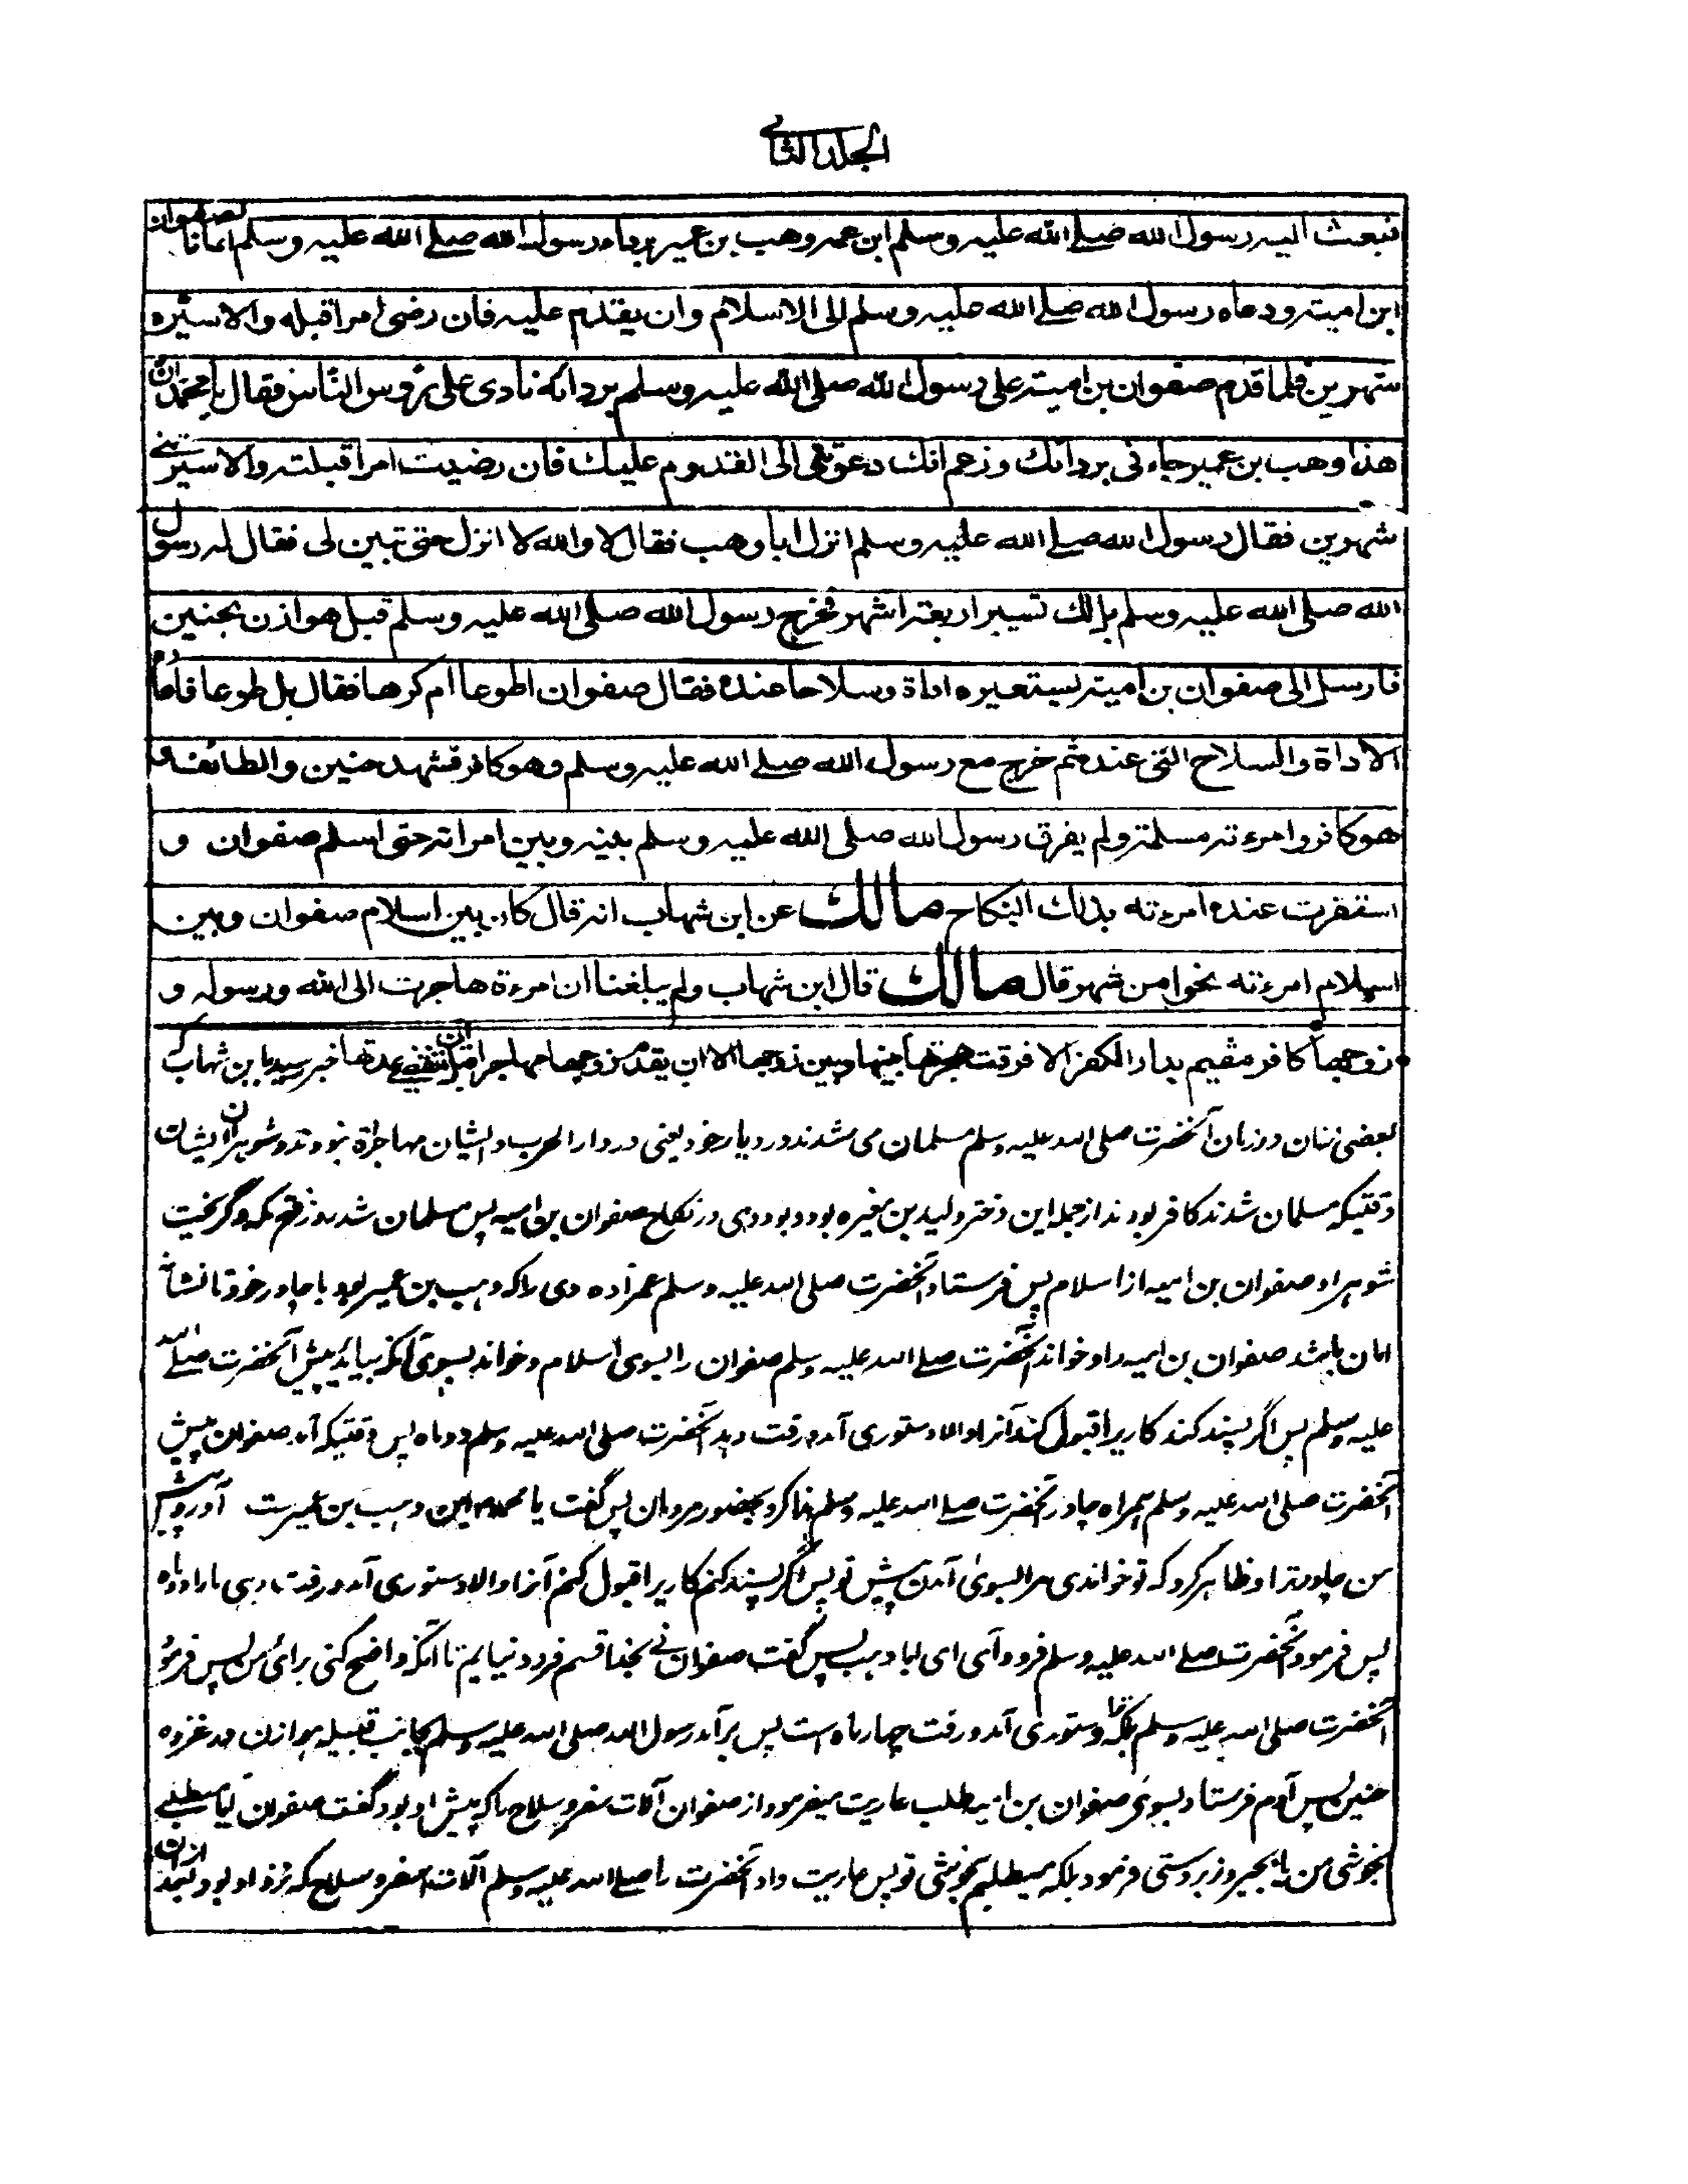 الجلد الثاني
فبعث اليه رسول الله صلے الله عليه وسلم ابن عمه وهب بن عمير برداء رسول الله صلے الله عليه وسلم امانا لصفوان
ابن امية ودعاه رسول الله صلے الله عليه وسلم الى الاسلام وان يقدم عليه فان رضى امرا قبله والا سيّره
شهرين فلما قدم صفوان بن امية على رسول الله صلى الله عليه وسلم بردائه نادى على رؤس الناس فقال يا محمد ان
هذا وهب بن عمير جاءنى بردائك وزعم انك دعوتنى الى القدوم عليك فان رضيت امرا قبلته والا سيرتنے
شهرين فقال رسول الله صلے الله عليه وسلم انزل ابا وهب فقال لا والله لا انزل حتى تبين لى فقال له رسول
الله صلى الله عليه وسلم بل لك تسيير اربعة اشهر فخرج رسول الله صلى الله عليه وسلم قبل هوازن بحنين
فارسل الى صفوان بن امية يستعيره اداة وسلاحا عنده فقال صفوان اطوعا ام كرها فقال بل طوعا فاعاره
الاداة والسلاح التى عنده ثم خرج مع رسول الله صلے الله عليه وسلم وهو كافر فشهد حنين والطائف و
هو كافر وامرءته مسلمة ولم يفرق رسول الله صلى الله عليه وسلم بينه وبين امراته حتى اسلم صفوان و
استقرت عنده امرءته بذلك النكاح مالك عن ابن شهاب انه قال كان بين اسلام صفوان وبين
اسلام امرءته نحوا من شهر قال مالك قال ابن شهاب ولم يبلغنا ان امرءة هاجرت الى الله ورسوله و
زوجها كافر مقيم بدار الكفر الا فرقت هجرتها بينها وبين زوجها الا ان يقدم زوجها مهاجرا قبل ان تنقضے عدتها خبر رسيد با بن شهاب كه
بعضى زنان در زمان آنحضرت صلى الله عليه وسلم مسلمان مى شدند در ديار خود يعنى در دار الحرب وايشان مهاجرة نبودند وشوہران ايشان
وقتيكہ مسلمان شدند كافر بودند از جملہ اين دختر وليد بن مغيره بود وبود وى در نكاح صفوان بن اميہ پس مسلمان شد روز فتح مكہ وگريخت
شوہر او صفوان بن اميہ از اسلام پس فرستاد آنحضرت صلى الله عليه وسلم عمزاده وى را كہ وہب بن عمير بود با چادر خود تا نشان
امان باشد صفوان بن اميہ را وخواند آنحضرت صلے الله عليه وسلم صفوان را بسوى اسلام وخواند بسوى آنكہ بيايد پيش آنحضرت صلے الله
عليه وسلم پس اگر پسند كند كاريرا قبول كند آنرا والا دستورى آمد ورفت دہد آنحضرت صلى الله عليه وسلم دو ماه پس وقتيكہ آمد صفوان پيش
آنحضرت صلى الله عليه وسلم ہمراه چادر آنحضرت صلے الله عليه وسلم ندا كرد بحضور مردمان پس گفت يا محمد اين وہب بن عميرست آورد پيش
من چادر ترا وظاہر كرد كہ تو خواندى مرا بسوى آمدن پيش تو پس اگر پسند كنم كاريرا قبول كنم آنرا والا دستورى آمد ورفت دہى مارا دو ماه
پس فرمود آنحضرت صلے الله عليه وسلم فرود آى اى ابا وہب پس گفت صفوان نے بخدا قسم فرود نيايم تا آنكہ واضح كنى براى من پس فرمود
آنحضرت صلى الله عليه وسلم بلكہ ترا دستورى آمد ورفت چہار ماه است پس برآمد رسول الله صلى الله عليه وسلم بجانب قبيلہ ہوازن در غزوه
حنين پس آدم فرستاد بسوى صفوان بن اميہ طلب عاريت ميفرمود از صفوان آلات سفر وسلاح را كہ پيش او بود گفت صفوان آيا ميطلبے
بخوشى من يا بجبر وزبردستى فرمود بلكہ ميطلبم بخوشى تو پس عاريت داد آنحضرت را صلے الله عليه وسلم آلات سفر وسلاح كہ نزد او بود بعد ازان